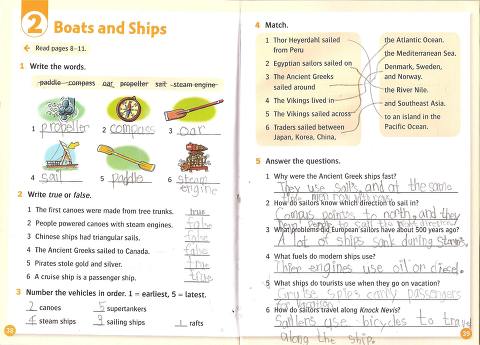 2 Boats and Ships
Read pages 8–11.
1 Write the words.
paddle compass oar propeller sail steam engine
1 propeller 2 compass 3 oar
4 sail 5 paddle 6 steam
engine
2 Write true or false.
1 The first canoes were made from tree trunks. true
2 People powered canoes with steam engines. false
3 Chinese ships had triangular sails. false
4 The Ancient Greeks sailed to Canada. false
5 Pirates stole gold and silver. true
6 A cruise ship is a passenger ship. true
3 Number the vehicles in order. 1 = earliest, 5 = latest.
2 canoes 5 supertankers
4 steam ships 3 sailing ships 1 rafts
38
4 Match.
1 Thor Heyerdahl sailed
from Peru
2 Egyptian sailors sailed on
3 The Ancient Greeks
sailed around
4 The Vikings lived in
5 The Vikings sailed across
6 Traders sailed between
Japan, Korea, China,
the Atlantic Ocean.
the Mediterranean Sea.
Denmark, Sweden,
and Norway.
the River Nile.
and Southeast Asia.
to an island in the
Pacific Ocean.
5 Answer the questions.
1 Why were the Ancient Greek ships fast?
They use sails, and at the same
time men row with oars.
2 How do sailors know which direction to sail in?
Compass points to north, and they
to sail the right direction
3 What problems did European sailors have about 500 years ago?
A lot of ships sank during storms.
4 What fuels do modern ships use?
Thier engines use oil or diesel.
5 What ships do tourists use when they go on vacation?
Cruise ships carry passengers
for vacation.
6 How do sailors travel along Knock Nevis?
Saillers use bicycles to travel
along the ship.
39